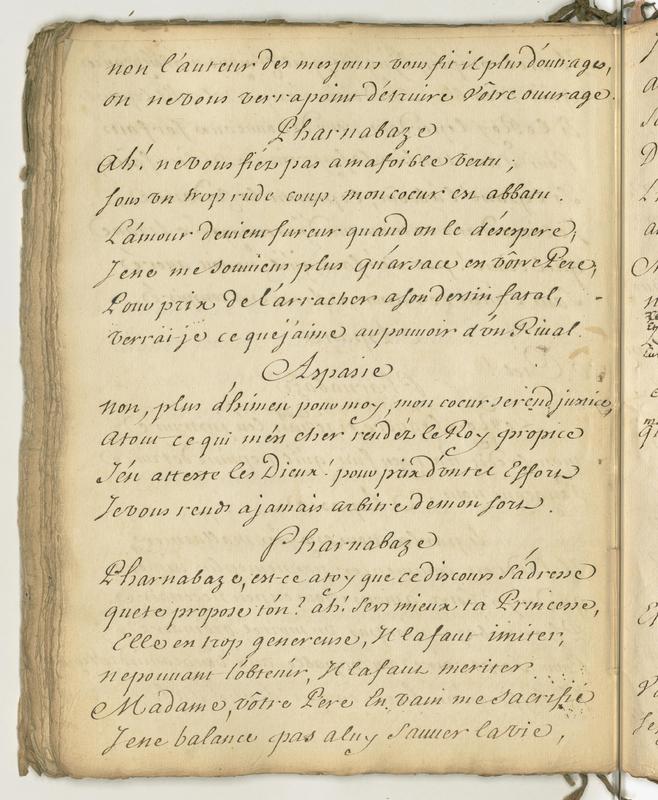 non l'auteur des mes jours vous fit il plus d'outrages,
on ne vous verra point détruire vôtre ouvrage.
Pharnabaze
Ah! ne vous fiéz pas a ma foible vertu ;
sous vn trop rude coup mon coeur est abbatu .
L'amour devient fureur quand on le désespere,
Je ne me souviens plus qu'arsace est vôtre Pere,
Pour prix de l'arracher a son destin fatal,
verrai-je ce que j'aime au pouvoir d'vn Rival.
Aspasie
non, plus d'himen pour moy, mon coeur se rend justice,
a tout ce qui m'est cher rendéz le Roy propice
J'én atteste les Dieux! pour prix d'vn tel Effort
Je vous rends a jamais arbitre de mon sort .
Pharnabaze
Pharnabaze, est-ce a toy que ce discours s'adresse
que te propose t'on? ah! sers mieux ta Princesse,
Elle est trop genereuse, Il la faut imiter,
ne pouvant l'obtenir, Il la faut meriter
Madame, vôtre Pere En vain me sacrifie
Je ne balance pas a luy sauver la vie ,